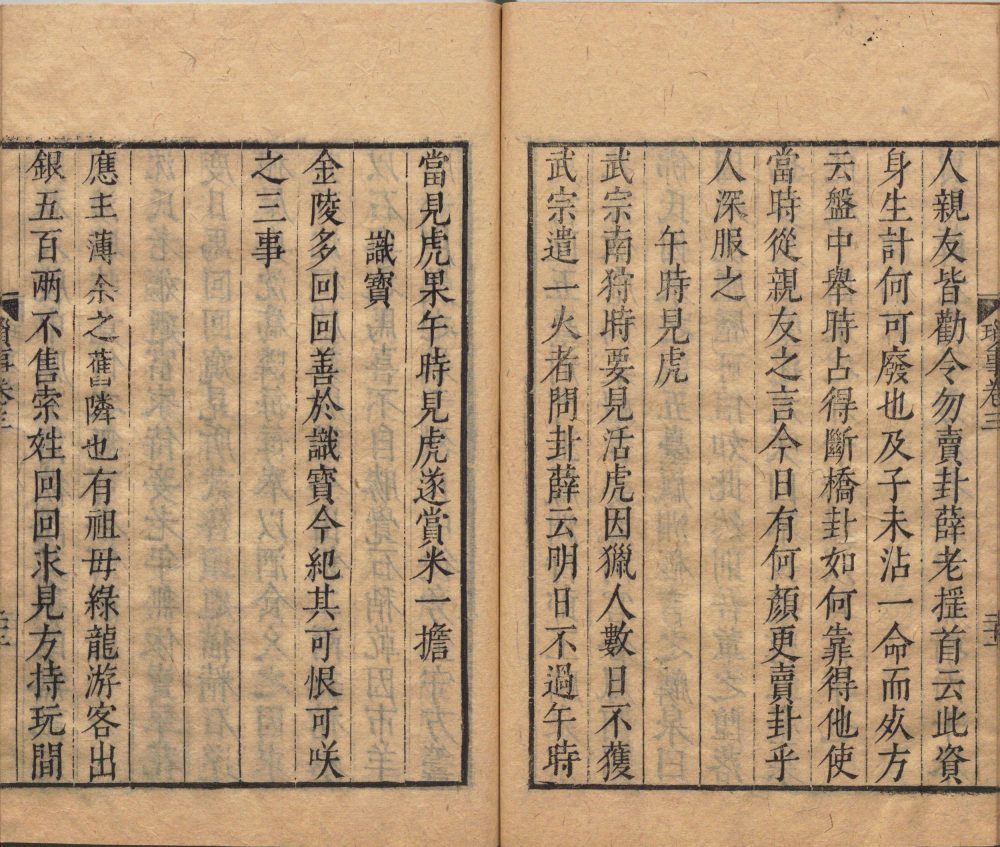 人親友皆勸令勿賣卦薛老揺首云此資
身生計何可廢也及子未沾一命而𡚁方
云盤中舉時占得斷橋卦如何靠得他使
當時從親友之言今日有何顏更賣卦乎
人深服之
午時見虎
武宗南狩時要見活虎因獵人數日不獲
武宗遣一火者問卦薛云明日不過午時
當見虎果午時見虎遂賞米一擔
識寶
金陵多回回善於識寶今紀其可恨可咲
之三事
應主薄余之舊隣也有祖毋綠龍游客出
銀五百兩不售索姓回回求見方持玩間